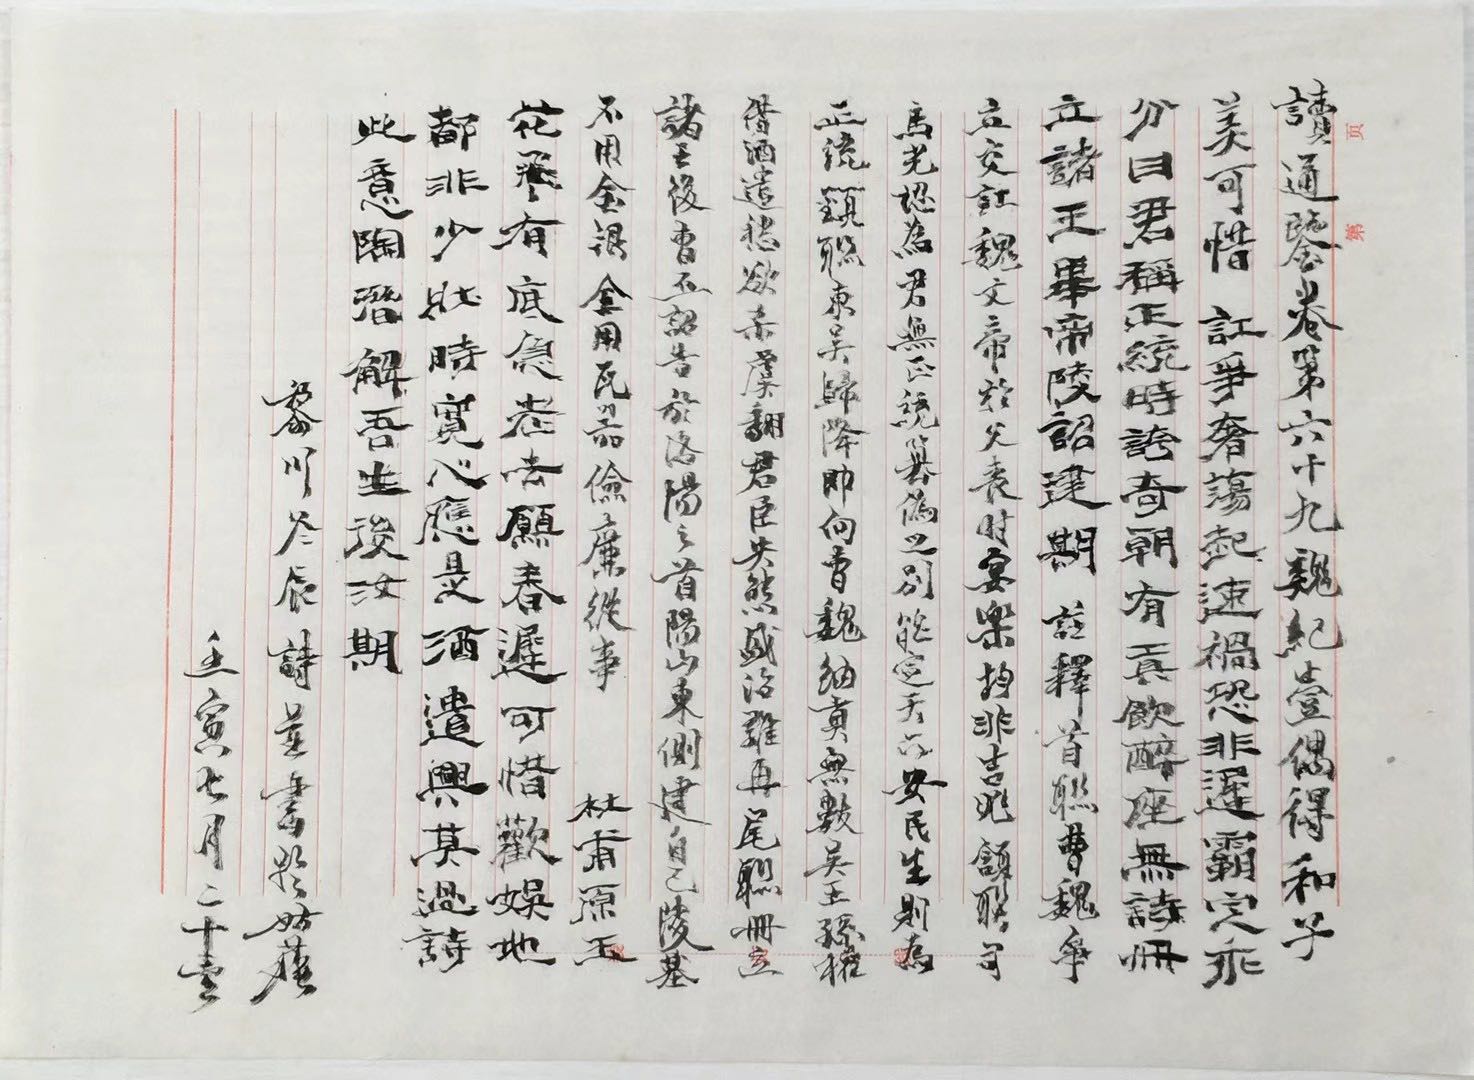 讀通鑒卷第六十九魏紀壹偶得和子
美可惜 訌爭奢蕩起速禍恐非遲霸定乖
分日君稱正統時誇奇朝有真飲醉座無詩冊
立諸王畢帝陵詔建期 註釋首聯曹魏爭
立交訌魏文帝於父喪时宴樂均非吉兆頷聯司
馬光認為君無正統篡偽之別能定天下安民生則為
正統頸聯東吴歸降即向曹魏納貢無數吴王孫權
借酒遣愁欲杀虞翻君臣失態盛治難再尾聯冊立
諸王後曹丕詔告於洛陽之首陽山東側建自己陵墓
不用金銀全用瓦器儉廉從事 杜甫原玉
花飛有底急老去願春遲可惜歡娛地
都非少壯時寬心應是酒遣興莫過詩
此意陶潛解吾生後汝期
岑辰詩並書於姑蘇
壬寅七月二十壹
页 第